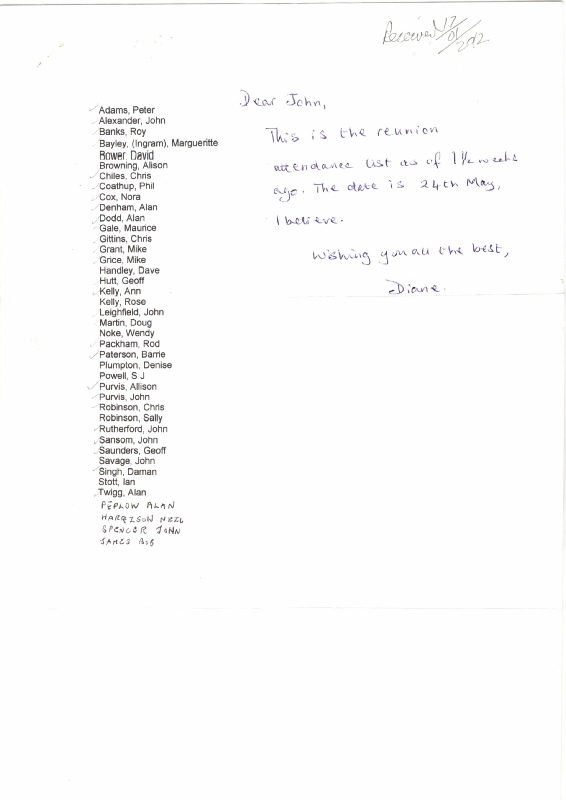 Received 17/
01/
2012
Dear John,
This is the reunion
attendance list as of 1½ weeks
ago. The date is 24th May,
I believe.
Wishing you all the best,
Diane.
Adams, Peter
Alexander, John
Banks, Roy
Bayley, (Ingram), Margueritte
Bower, David
Browning, Alison
Chiles, Chris
Coathup, Phil
Cox, Nora
Denham, Alan
Dodd, Alan
Gale, Maurice
Gittins, Chris
Grant, Mike
Grice, Mike
Handley, Dave
Hutt, Geoff
Kelly, Ann
Kelly, Rose
Leighfield, John
Martin, Doug
Noke, Wendy
Packham, Rod
Paterson, Barrie
Plumpton, Denise
Powell, S J
Purvis, Allison
Purvis, John
Robinson, Chris
Robinson, Sally
Rutherford, John
Sansom, John
Saunders, Geoff
Savage, John
Singh, Daman
Stott, Ian
Twigg, Alan
PEPLOW ALAN
HARRISON NEIL
SPENCER JOHN
JAMES BOB